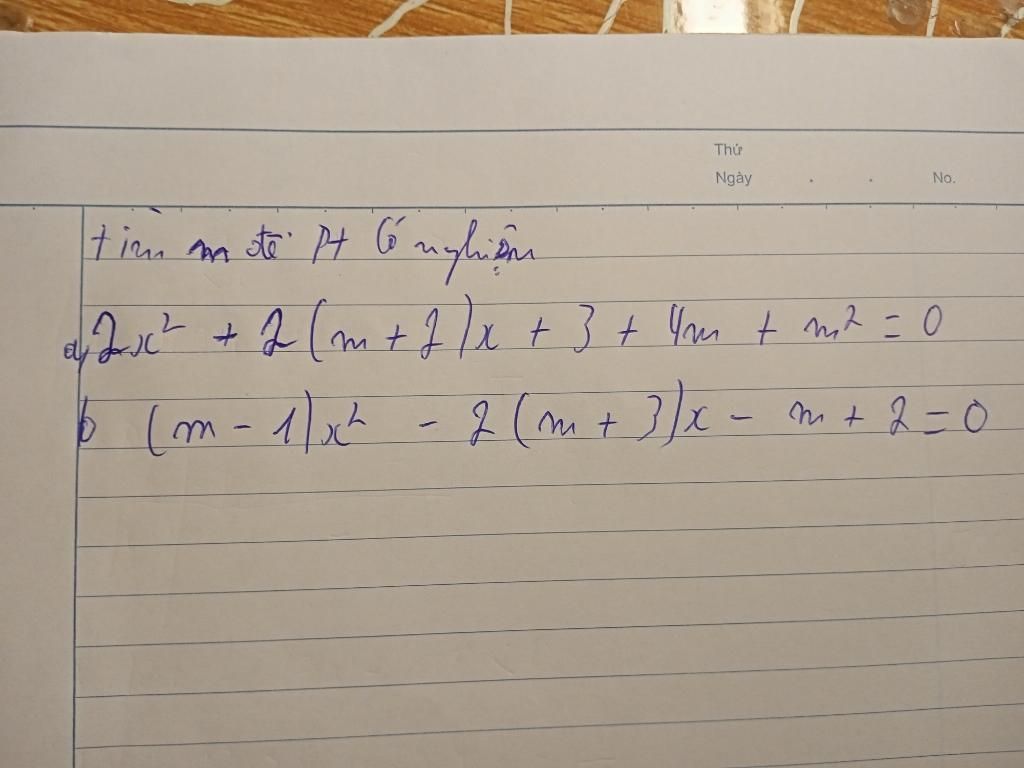 Thứ
Ngày . . No.
tìm m để Pt Có nghiệm
a, 2x² + 2(m+2)x + 3 + 4m + m² = 0
b (m-1)x² - 2(m+3)x - m + 2 = 0